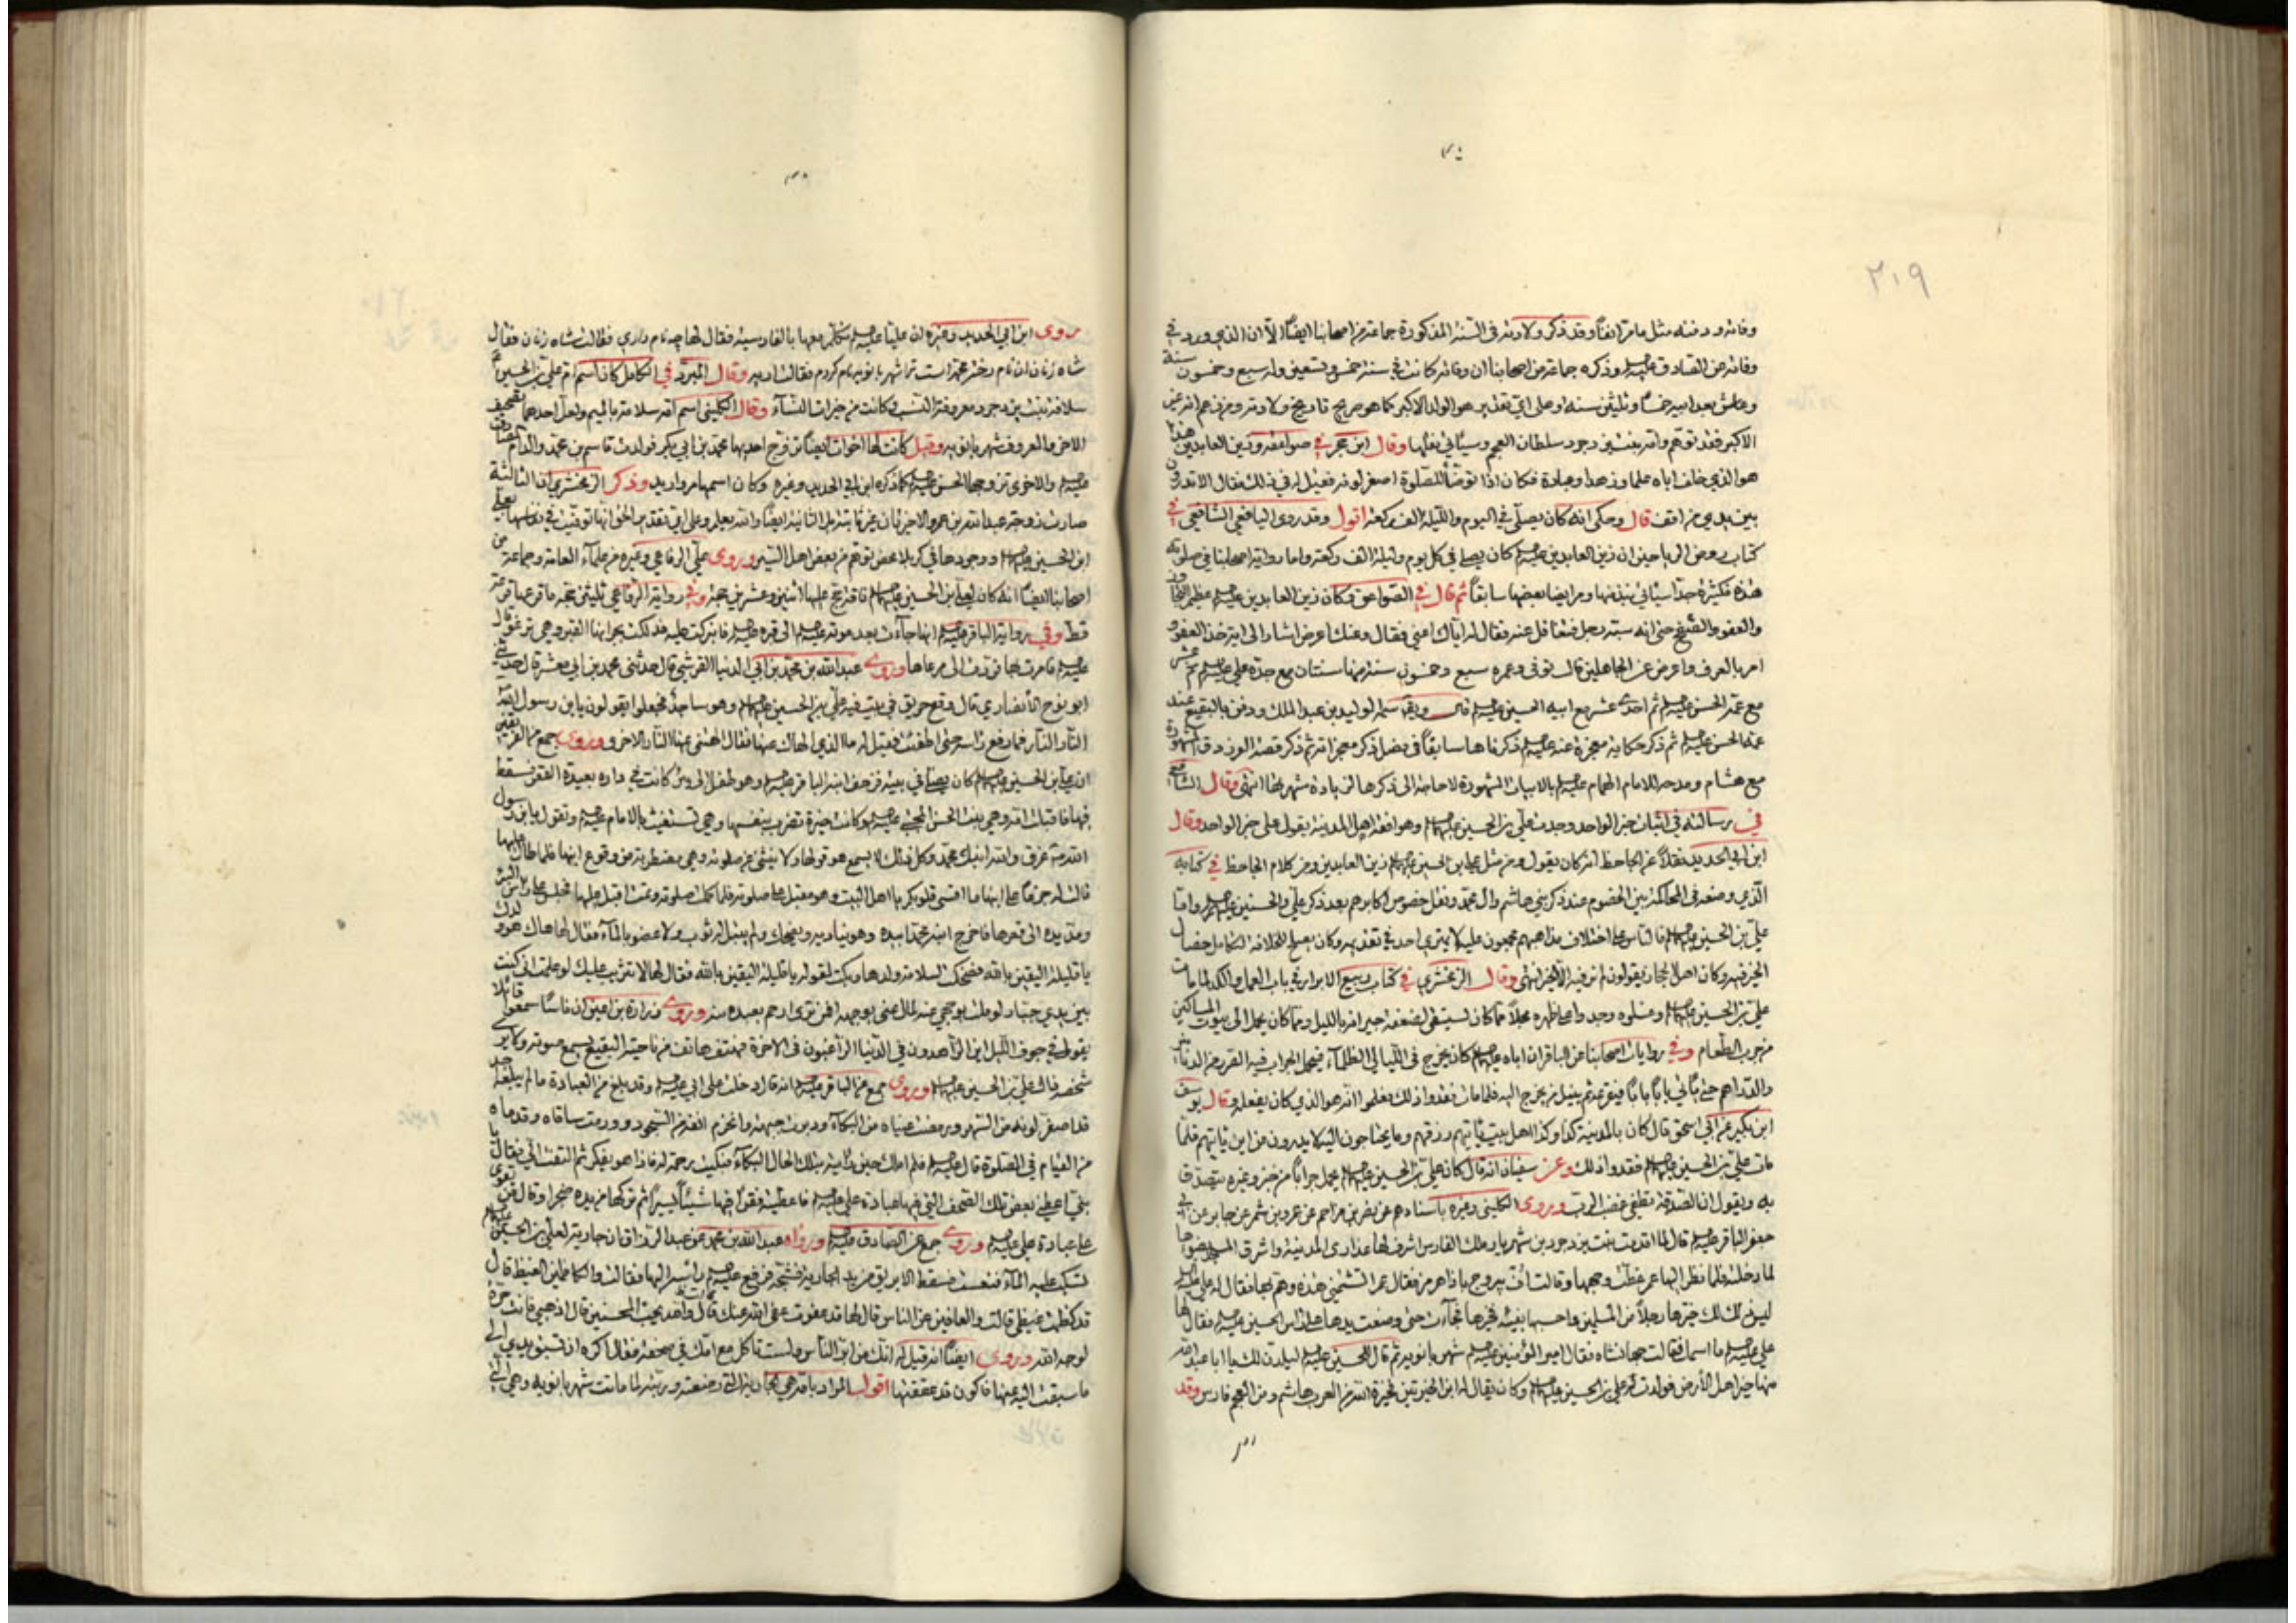 ٢٠٩
وفاته ودفنه مثل مامر انفا وقد ذكر ولادته فى السنة المذكورة جماعة من اصحابنا ايضا الا ان الذي ورد في
وفاته عن الصادق عليه وذكره جماعة من اصحابنا ان وفاته كانت في سنة خمس وتسعين وله سبع وخمسون سنة
وعاش بعد ابيه خمسا وثلثين سنة وعلى اي تقدير هو الولد الاكبر كما هو صريح تاريخ ولادته ومن زعم انه غير
الاكبر فقد توهم وامه بنت يزدجرد سلطان العجم وسيأتي نقلها وقال ابن حجر في صواعقه وزين العابدين هذا
هو الذي خلف اباه علما وزهدا وعبادة فكان اذا توضأ للصلوة اصفر لونه فقيل له في ذلك فقال الا تدرون
بين يدي من اقف قال وحكى انه كان يصلي في اليوم والليلة الف ركعة اقول وقد روى اليافعي الشافعي في
كتاب روض الرياحين ان زين العابدين عليه كان يصلي في كل يوم وليلة الف ركعة واما رواية اصحابنا في صلوته
هذه فكثيرة جدا سيأتي نبذ منها ومر ايضا بعضها سابقا ثم قال في الصواعق وكان زين العابدين عليه عظيم التجاوز
والعفو والصفح حتى انه سبه رجل فتغافل عنه فقال له اياك اعني فقال وعنك اعرض اشار الى اية خذ العفو و
امر بالعرف واعرض عن الجاهلين قال توفى وعمره سبع وخمسون سنة منها سنتان مع جده علي عليه ثم عشر
مع عمه الحسن عليه ثم احدى عشر مع ابيه الحسين عليه قال ويقال سمه الوليد بن عبد الملك ودفن بالبقيع عند
عمه الحسن عليه ثم ذكر حكاية معجزة عنه عليه ذكرناها سابقا في فصل ذكر معجزاته ثم ذكر قصة الفرزدق المشهورة
مع هشام ومدحه للامام الهمام عليه بالابيات المشهورة لا حاجة الى ذكرها لزيادة شهرتها انتهى وقال الشافعي
في رسالته في اثبات خبر الواحد وجدت علي بن الحسين عليهما وهو افقه اهل المدينة يقول على خبر الواحد وقال
ابن ابي الحديد نقلا عن الجاحظ انه كان يقول ومن مثل علي بن الحسين عليهما زين العابدين ومن كلام الجاحظ في كتابه
الذي وضعه في المحاكمة بين الخصوم عند ذكر بني هاشم وال محمد ونقل خصوص اكابرهم بعد ذكر علي والحسنين عليهم واما
علي بن الحسين عليهما فالناس على اختلاف مذاهبهم مجمعون عليه لا يمترى احد في تقديمه وكان يصلح للخلافة لتكامل خصال
الخير فيه وكان اهل الحجاز يقولون لم نر فيه الا انتهى وقال الزمخشري في كتاب ربيع الابرار في باب العمل والكد لما مات
علي بن الحسين عليهما وغسلوه وجد واعلى ظهره مجلا مما كان يستقى لضعفة جيرانه بالليل ومما كان يحمل الى بيوت المساكين
من جرب الطعام وفي روايات اصحابنا عن الباقر ان اباه عليهما كان يخرج في الليالي الظلماء فيحمل الجراب فيه الصرر من الدنانير
والدراهم حتى يأتي بابا بابا فيقرعه ثم ينيل من يخرج اليه فلما مات فقدوا ذلك فعلموا انه هو الذي كان يفعله وقال يوسف
ابن بكير عن ابي اسحق قال كان بالمدينة كذا وكذا اهل بيت يأتيهم رزقهم وما يحتاجون اليه لا يدرون من اين يأتيهم فلما
مات علي بن الحسين عليهما فقدوا ذلك وعن سفيان انه قال كان علي بن الحسين عليهما يحمل جرابا من خبز وغيره يتصدق
به ويقول ان الصدقة تطفى غضب الرب وروى الكليني وغيره باسنادهم عن نصر بن مزاحم عن عمرو بن شمر عن جابر عن ابي
جعفر الباقر عليه قال لما اقدمت بنت يزدجرد بن شهريار ملك الفارس اشرف لها عذارى المدينة واشرق المسجد بضوئها
لما دخلته فلما نظر اليها عمر غطت وجهها وقالت اف بيروج باذا هرمز فقال عمر اتشتمني هذه وهم بها فقال له علي عليه
ليس ذلك لك خيرها رجلا من المسلمين واحسبها بفيئه فخيرها فجاءت حتى وضعت يدها على رأس الحسين عليه فقال لها
علي عليه ما اسمك فقالت جهانشاه فقال امير المؤمنين عليه شهربانويه ثم قال للحسين عليه ليلدن لك يا ابا عبد الله
منها خير اهل الأرض فولدت له علي بن الحسين عليهما وكان يقال له ابن الخيرتين فخيرة الله من العرب هاشم ومن العجم فارس وقد
روى ابن ابي الحديد وغيره ان عليا عليه تكلم معها بالفارسية فقال لها چه نام داري فقالت شاه زنان فقال
شاه زنان ان نام دختر محمد است ترا شهربانويه نام كردم فقالت اديه وقال المبرد في الكامل كان اسم ام علي بن الحسين
سلافة بنت يزدجرد معروفة النسب وكانت من خيرات النساء وقال الكليني اسم امه سلامة بالميم ولعل احدهما تصحيف
الاخر والمعروف شهربانويه وقيل كانت لها اخوات ايضا تزوج احديها محمد بن ابي بكر فولدت قاسم بن محمد والد ام الصادق
عليه والاخرى تزوجها الحسن عليه كما ذكره ابن ابي الحديد وغيره وكان اسمها مرواريد وذكر الزمخشري ان الثالثة
صارت زوجة عبد الله بن عمر والاخريان غير ثابتة بل الثانية ايضا والله يعلم وعلى اي تقدير الحق انها توفيت في نفاسها بعلي
ابن الحسين عليهما ووجودها في كربلا محض توهم من بعض اهل السير وروى علي الرفاعي وغيره من علماء العامة وجماعة من
اصحابنا ايضا انه كان لعلي بن الحسين عليهما ناقة حج عليها اثنين وعشرين حجة وفي رواية الرفاعي ثلثين حجة ما قرعها قرعة
قط وفي رواية الباقر عليه انها جاءت بعد موته عليه الى قبره عليه فابركت عليه فدلكت بجرانها القبر وهي ترغو قال
عليه فامرت بها فردت الى مرعاها وروى عبد الله بن محمد بن ابي الدنيا القرشي قال حدثني محمد بن ابي معشر قال حدثني
ابو نوح الأنصاري قال وقع حريق في بيت فيه علي بن الحسين عليهما وهو ساجد فجعلوا يقولون يا ابن رسول الله
النار النار فما رفع رأسه حتى اطفئت فقيل له ما الذي الهاك عنها فقال الهتني عنها النار الاخرى وروى جمع من الفريقين
ان علي بن الحسين عليهما كان يصلي في بيته فزحف ابنه الباقر عليه وهو طفل الى بئر كانت في داره بعيدة القعر فسقط
فيها فاقبلت امه وهي بنت الحسن المجتبى عليه وكانت خيرة تضرب بنفسها وهي تستغيث بالامام عليه وتقول يا ابن رسول
الله غرق والله ابنك محمد وكل ذلك لا يسمع هو قولها ولا ينثني عن صلوته وهي مضطربة من وقوع ابنها فلما طال عليها
قالت له جزعا على ابنها ما اقسى قلوبكم يا اهل البيت وهو مقبل على صلوته فلما اكملت صلوته وتمت اقبل عليها فجلس على رأس البئر
ومد يده الى قعرها فاخرج ابنه محمدا بيده وهو يناديه ويضحك ولم يبتل له ثوب ولا عضو بالماء فقال لها هاك هو ولدك
يا قليلة اليقين بالله فضحكت لسلامة ولدها وبكت لقوله يا قليلة اليقين بالله فقال لها لا تثريب عليك لو علمت اني كنت
بين يدي جبار لو ملت بوجهي عنه لمال عني بوجهه افمن ترى ارحم بعبده منه وروى زرارة بن اعين ان ناسا سمعوا قائلا
يقول في جوف الليل اين الزاهدون في الدنيا الراغبون في الاخرة فهتف هاتف من ناحية البقيع يسمع صوته ولا يرى
شخصه ذاك علي بن الحسين عليهما وروى جمع عن الباقر عليه انه قال دخلت على ابي عليه وقد بلغ من العبادة ما لم يبلغه احد
قد اصفر لونه من السهر ورمضت عيناه من البكاء ودبرت جبهته وانخرم انفه من السجود وورمت ساقاه وقدماه
من القيام في الصلوة قال عليه فلم املك حين رأيته بتلك الحال البكاء فبكيت رحمة له فاذا هو يفكر ثم التفت الي فقال يا
بني اعطني بعض تلك الصحف التي فيها عبادة علي عليه فاعطيته فقرأ فيها شيئا يسيرا ثم تركها من يده ضجرا وقال من يقوى
على عبادة علي عليه وروى جمع عن الصادق عليه ورواه عبد الله بن محمد عن عبد الرزاق ان جارية لعلي بن الحسين عليهما
تسكب عليه الماء فنعست فسقط الابريق من يد الجارية فشجه فرفع عليه رأسه اليها فقالت والكاظمين الغيظ قال
قد كظمت غيظي قالت والعافين عن الناس قال لها قد عفوت عفى الله عنك قالت والله يحب المحسنين قال اذهبي فانت حرة
لوجه الله وروى ايضا انه قيل له انك من ابر الناس ولست تاكل مع امك في صحفة فقال اكره ان تسبق يدي الى
ما سبقت اليه عينها فاكون قد عققتها اقول المراد بامه هي الجارية التي وضعته وربته لما ماتت شهربانويه وهي التي